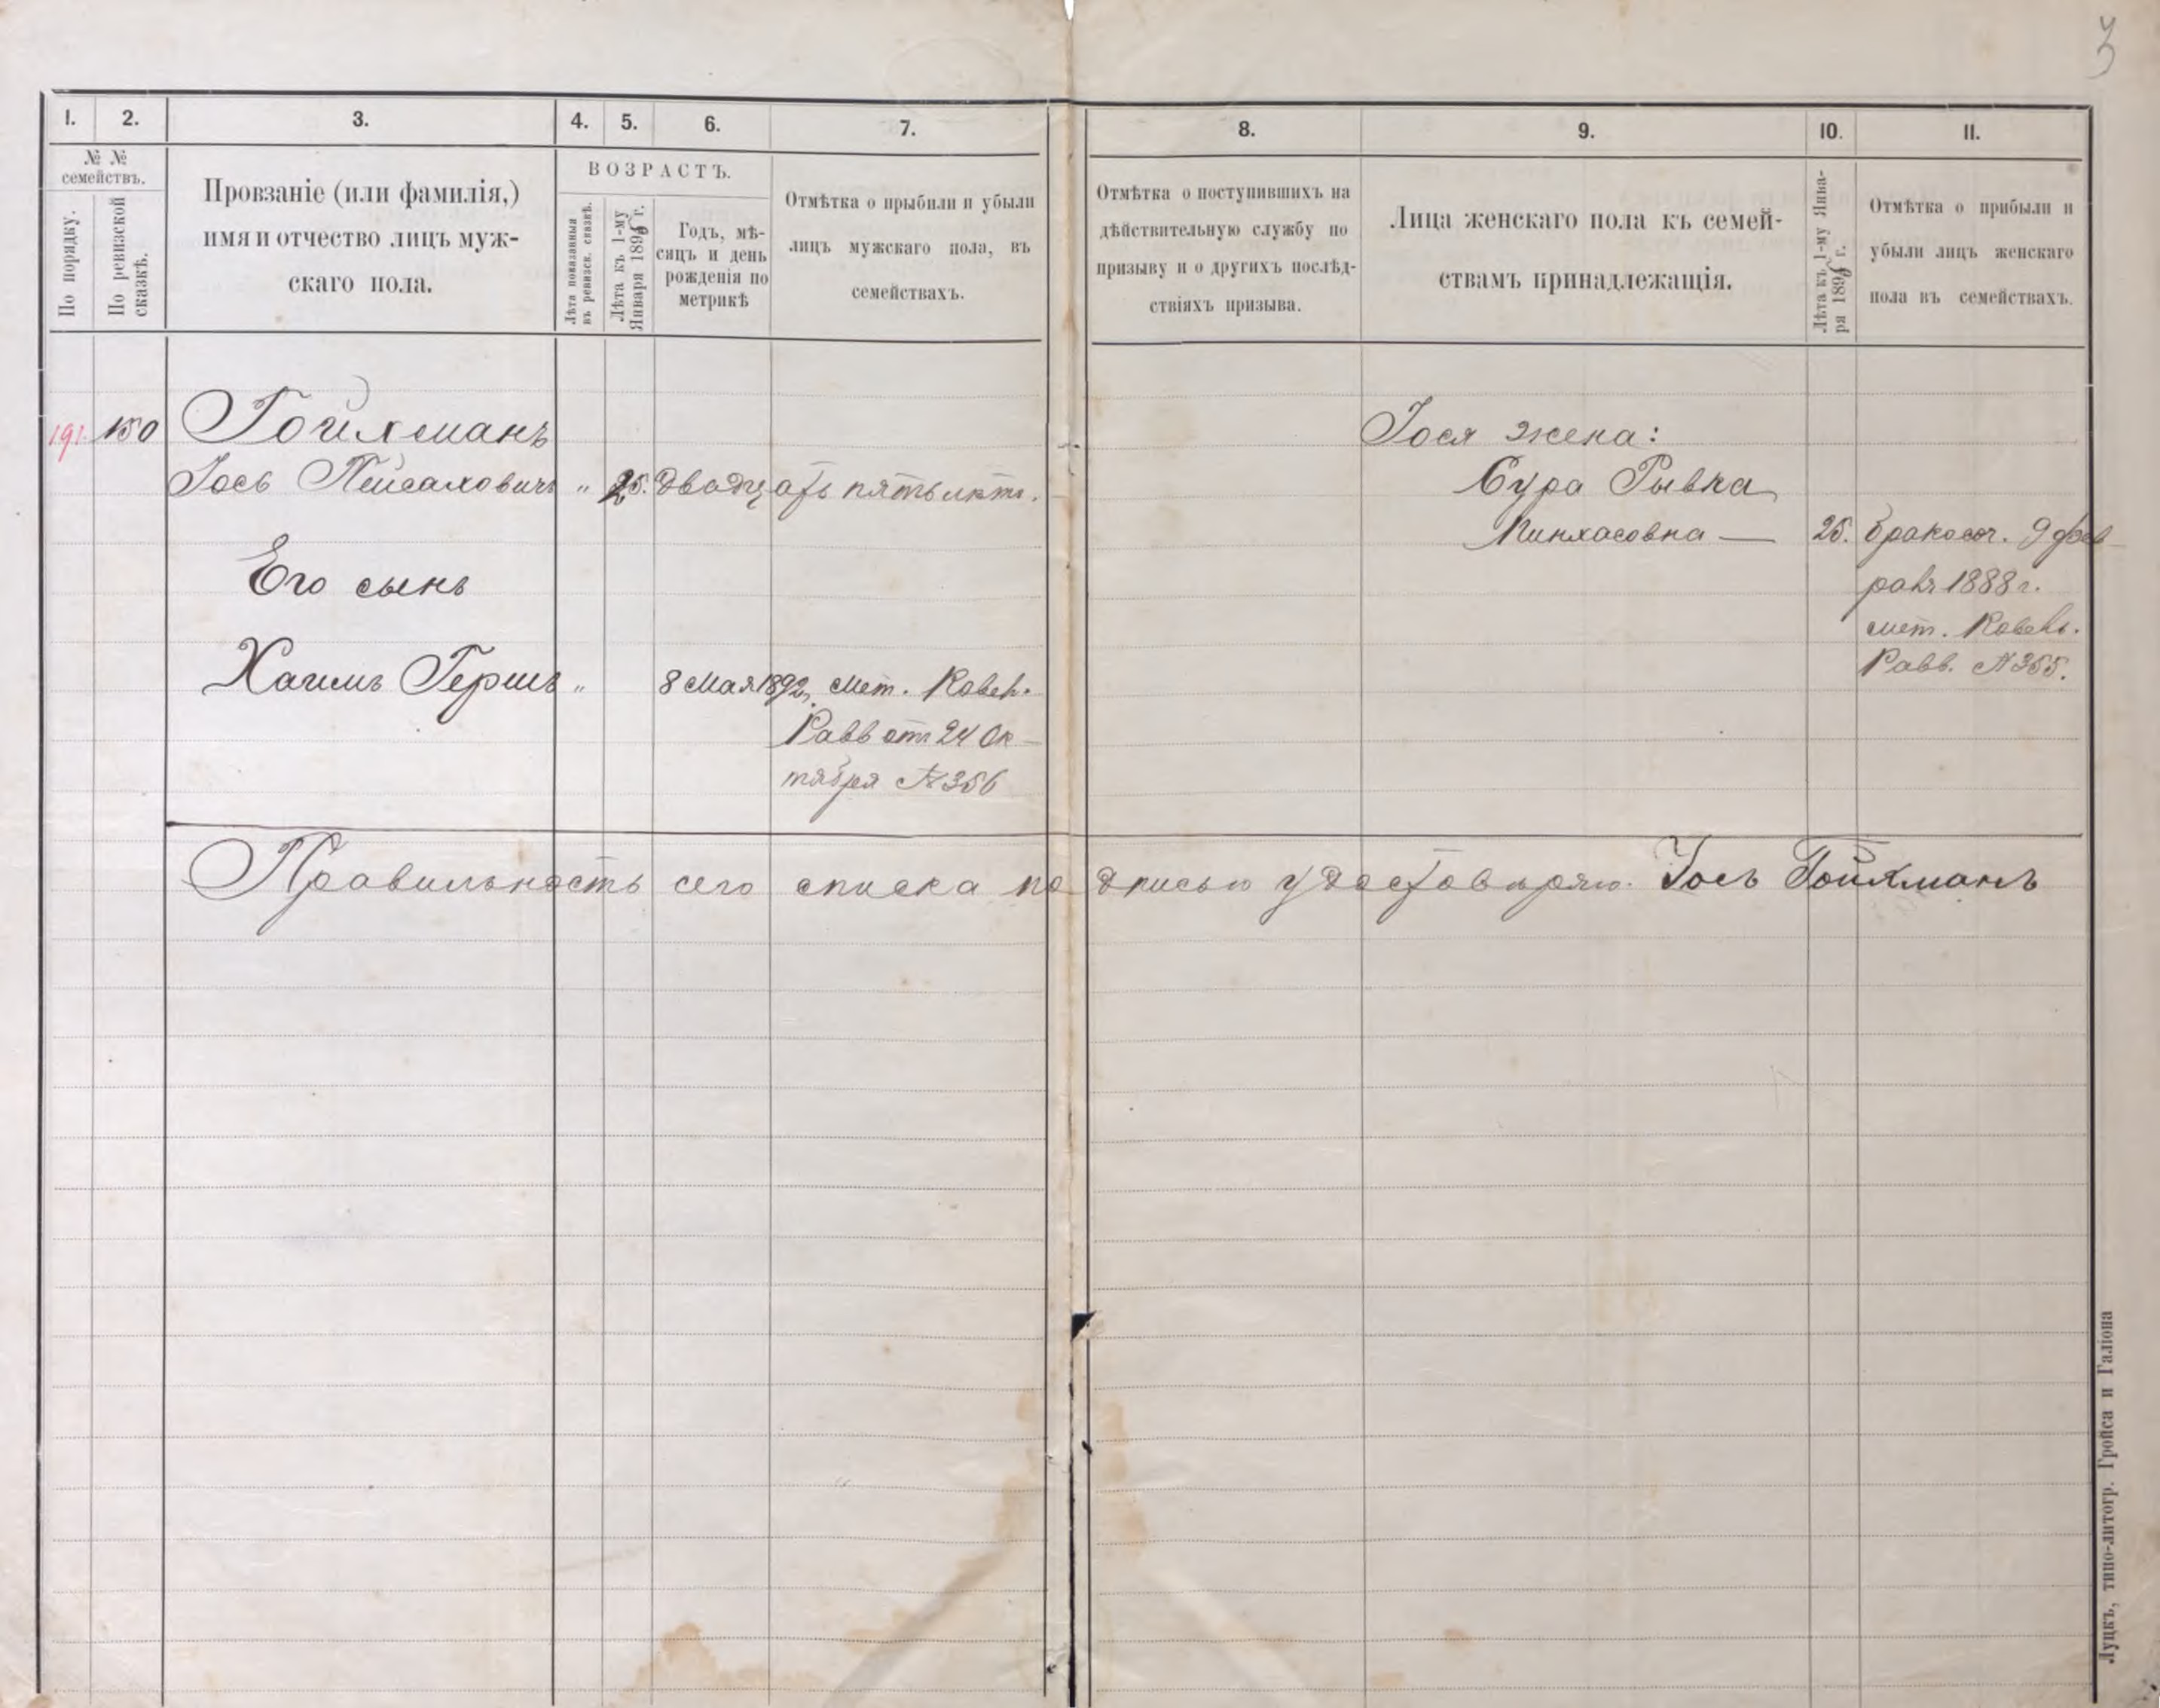 З
1.
2.
3.
4.
5.
6.
7.
8.
9.
10.
11.
№ №
семействъ.
По порядку.
По ревизской
сказкѣ.
Прозваніе (или фамилія,)
имя и отчество лицъ муж-
скаго пола.
ВОЗРАСТЪ.
Лѣта показанныя
въ ревизск. сказкѣ.
Лѣта къ 1-му
Января 1895 г.
Годъ, мѣ-
сяцъ и день
рожденія по
метрикѣ
Отмѣтка о прыбыли и убыли
лицъ мужскаго пола, въ
семействахъ.
Отмѣтка о поступившихъ на
дѣйствительную службу по
призыву и о другихъ послѣд-
ствіяхъ призыва.
Лица женскаго пола къ семей-
ствамъ принадлежащія.
Лѣта къ 1-му Янва-
ря 1895 г.
Отмѣтка о прибыли и
убыли лицъ женскаго
пола въ семействахъ.
191. 150 Гойхманъ
Іось Пейсаховичъ „ 25. двадцать пять лѣтъ.
Его сынъ
Хаимъ Гершъ „ 8 Мая 1892 г. мет. Ковен.
Равв отъ 24 Ок-
тября №356
Іося жена:
Сура Рывка
Пинхасовна — 25. бракосоч. 9 фев-
раля 1888 г.
мет. Ковен.
Равв. №355.
Правильность сего списка подписью удостовѣряю. Іось Гойхманъ
Луцкъ, типо-литогр. Гройса и Галіона